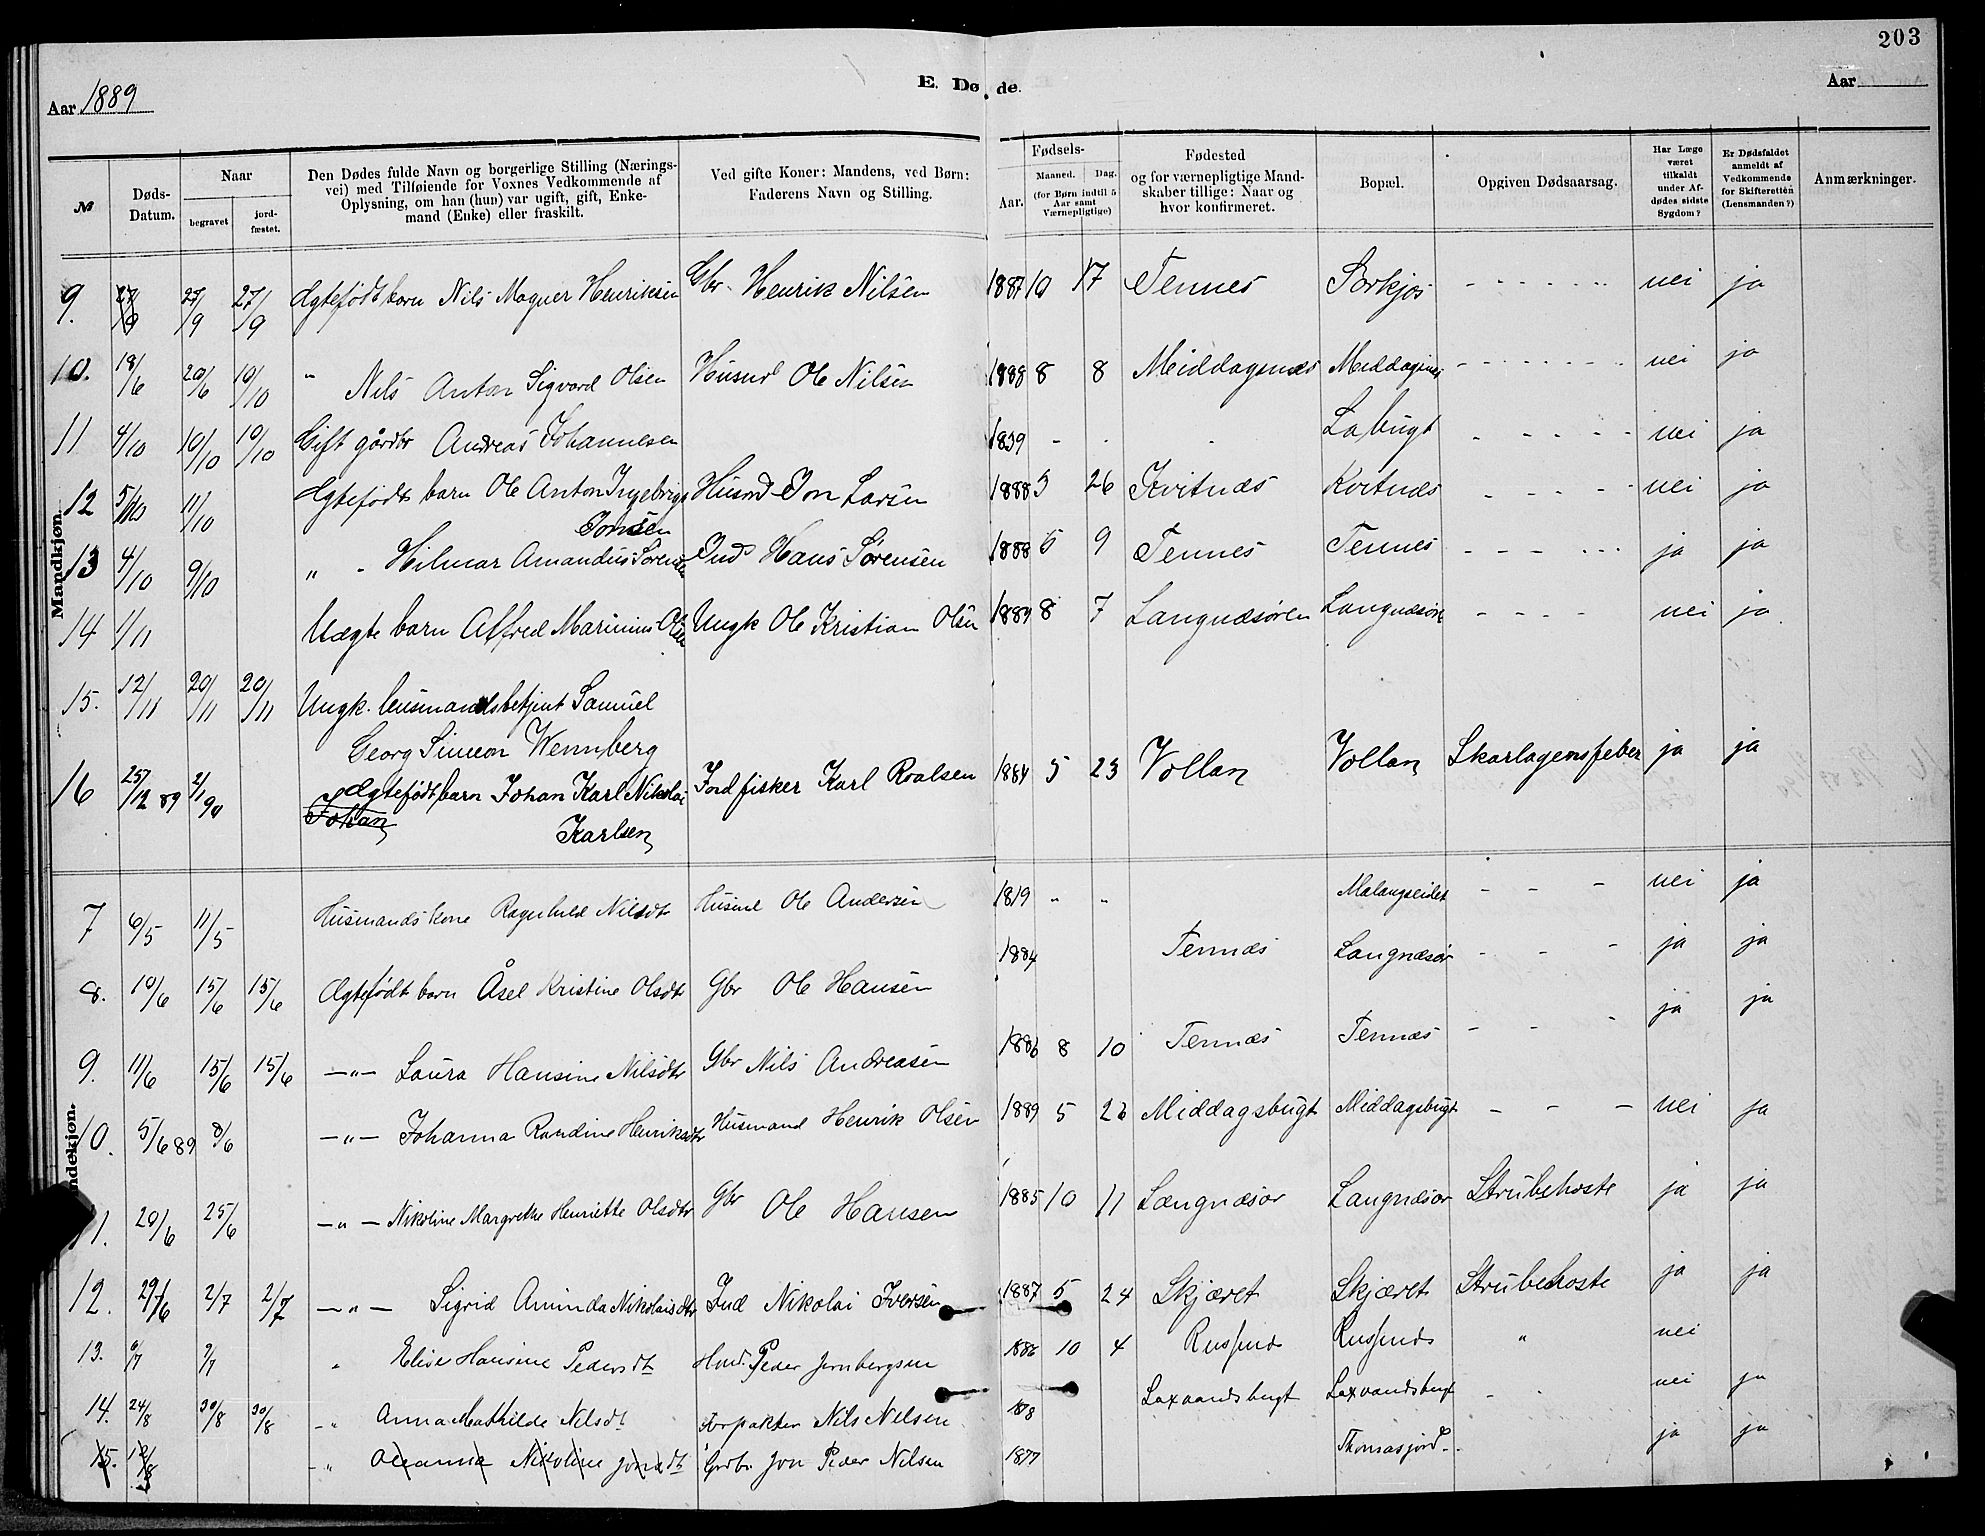 203
Aar 1889
E. Dø de.
Aar
№
Døds-Datum.
Naar
begravet
jord-fæstet.
Den Dødes fulde Navn og borgerlige Stilling (Nærings-
vei) med Tilføiende for Voxnes Vedkommende af
Oplysning, om han (hun) var ugift, gift, Enke-
mand (Enke) eller fraskilt.
Ved gifte Koner: Mandens, ved Børn:
Faderens Navn og Stilling.
Fødsels-
Aar.
Maaned.
Dag.
(for Børn indtil 5
Aar samt
Værnepligtige)
Fødested
og for værnepligtige Mand-
skaber tillige: Naar og
hvor konfirmeret.
Bopæl.
Opgiven Dødsaarsag.
Har Læge
været
tilkaldt
under Af-
dødes sidste
Sygdom?
Er Dødsfaldet
anmeldt af
Vedkommende
for Skifteretten
(Lensmanden?)
Anmærkninger.
Mandkjøn.
9. 27/9 27/9 27/9 Ægtefødt barn Nils Magner Henriksen Gbr. Henrik Nilsen 1887 10 17 Tennes Sorkjos - - - - - - nei ja
10. 18/6 20/6 10/10 " Nils Anton Sigvard Olsen Husmd Ole Nilsen 1888 8 8 Middagsnæs Middagsnes - - - - - - nei ja
11 4/10 10/10 10/10 Gift gårdbr Andreas Johannesen 1839 - - - Labugt - - - - - nei ja
12 5/10 11/10 Ægtefødt barn Ole Anton Ingebrigt Husmd Jon Larsen 1888 3 26 Kvitnæs Kvitnæs - - - - nei ja
Jonsen
13 4/10 9/10 " - Hilmar Amandus Sørensen Ind Hans Sørensen 1888 5 9 Tennes Tennes - - - - - - ja ja
14 1/11 Uægte barn Alfred Marinius Olsen Ungk Ole Kristian Olsen 1889 8 7 Langnæsøren Langnæsøre - - - nei ja
15. 12/11 20/11 20/11 Ungk. husmandsbetjent Samuel
Georg Simeon Wennberg
16 25/12 89 2/1 90 Ægtefødt barn Johan Karl Nikolai Jordfisker Karl Roalsen 1884 5 23 Vollan Vollan Skarlagensfeber ja ja
Johan Karlsen
7 6/5 11/5 Husmandskone Ragnhild Nilsdtr Husmd Ole Andersen 1819 " " Malangseidet - - - nei ja
8. 10/6 15/6 15/6 Ægtefødt barn Åsel Kristine Olsdtr Gbr Ole Hansen 1884 Tennæs Langnæsør - - - ja ja
9. 11/6 15/6 15/6 -"- Laura Hansine Nilsdtr Gbr Nils Andreasen 1886 8 10 Tennæs Tennæs - - - ja ja
10. 5/6 89 8/6 -"- Johanna Randine Henriksdtr Husmand Henrik Olsen 1889 5 26 Middagsbugt Middagsbugt - - - nei ja
11. 20/6 25/6 -"- Nikoline Margrethe Henriette Olsdtr Gbr Ole Hansen 1885 10 11 Langnæsør Langnæsør Strubehoste ja ja
12. 29/6 2/7 2/7 -"- Sigrid Aminda Nikolaisdtr Ind Nikolai Iversen 1887 5 24 Skjæret Skjæret Strubehoste ja ja
13. 6/7 9/7 " Elise Hansine Pedersdt Hmd. Peder Jernbergsen 1886 10 4 " nei
14. 24/8 30/8 30/8 -" Anna Mathilde Nilsdt Forpakter Nils Nilsen Laxvandsbugt Laxvandsbugt - - nei ja
15. -" Oleanna Nikoline Jonsdt Grdbr Jon Peder Nilsen 1877 Thomasjord - ja ja